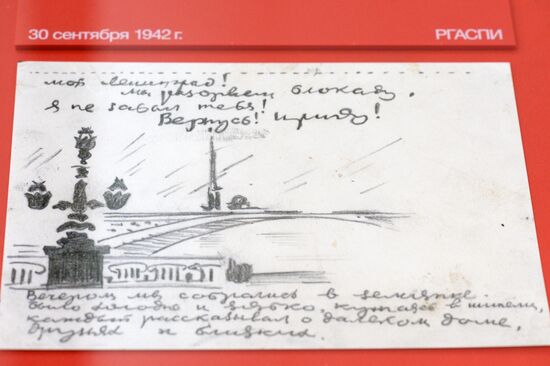 30 сентября 1942 г.
РГАСПИ
мой Ленинград!
мы разорвем блокаду.
я не забыл тебя!
Вернусь! приду!
Вечером мы собрались в землянке.
было холодно и зябко, кутаясь в шинели,
каждый рассказывал о далеком доме,
друзьях и близких.